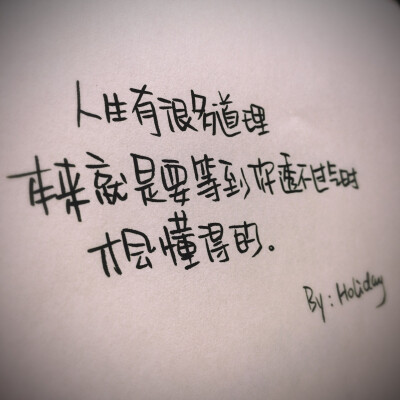 人生有很多道理
本来就是要等到你透不过气时
才会懂得的。
By:Holiday